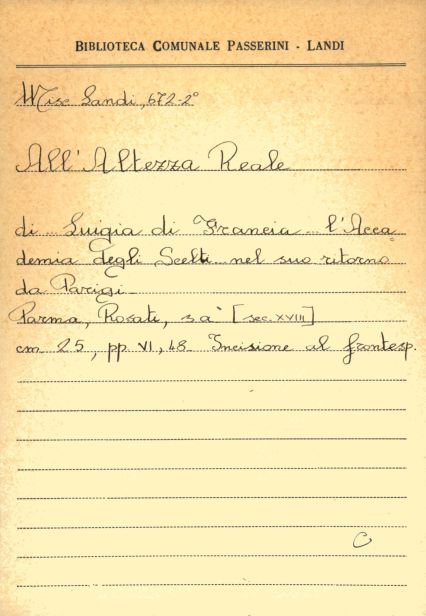 BIBLIOTECA COMUNALE PASSERINI - LANDI
Misc Landi, 672-2°
All'Altezza Reale
di Luigia di Francia... l'Acca
demia degli Scelti nel suo ritorno
da Parigi.
Parma, Rosati, s a [sec. XVIII]
cm 25, pp VI, 48 Incisione al frontesp.
C